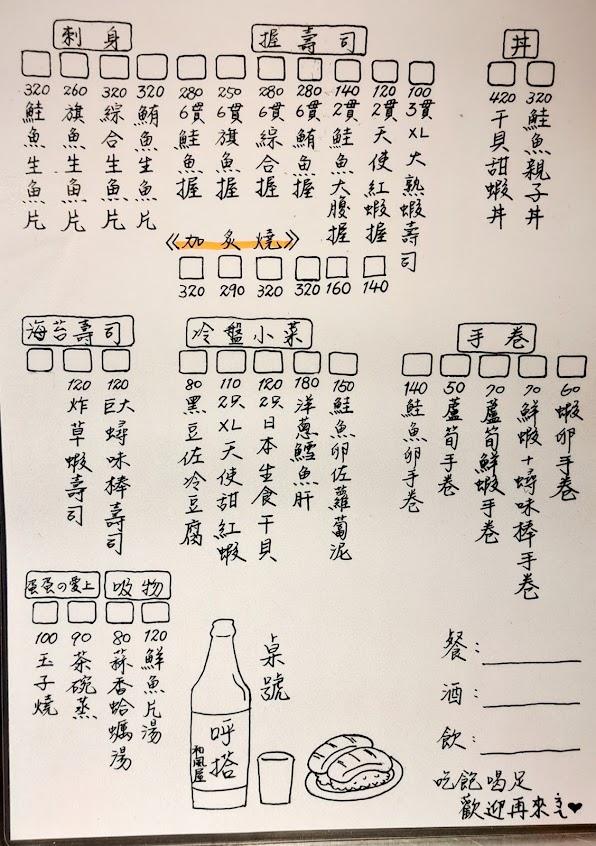 刺身
320 鮭魚生魚片
260 旗魚生魚片
320 綜合生魚片
320 鮪魚生魚片
握壽司
280 6貫鮭魚握
250 6貫旗魚握
280 6貫綜合握
280 6貫鮪魚握
140 2貫鮭魚大腹握
120 2貫天使紅蝦握
100 3貫XL大熟蝦壽司
《加炙燒》
320 290 320 320 160 140
丼
420 干貝甜蝦丼
320 鮭魚親子丼
海苔壽司
120 炸草蝦壽司
120 巨大蟳味棒壽司
冷盤小菜
80 黑豆佐冷豆腐
110 2只XL天使甜紅蝦
120 2只日本生食干貝
180 洋蔥鱈魚肝
150 鮭魚卵佐蘿蔔泥
手卷
140 鮭魚卵手卷
50 蘆筍手卷
70 蘆筍鮮蝦手卷
70 鮮蝦+蟳味棒手卷
60 蝦卵手卷
蛋蛋の愛上
100 玉子燒
90 茶碗蒸
吸物
80 蒜香蛤蠣湯
120 鮮魚片湯
呼搭
和風屋
桌號
餐:
酒:
飲:
吃飽喝足
歡迎再來